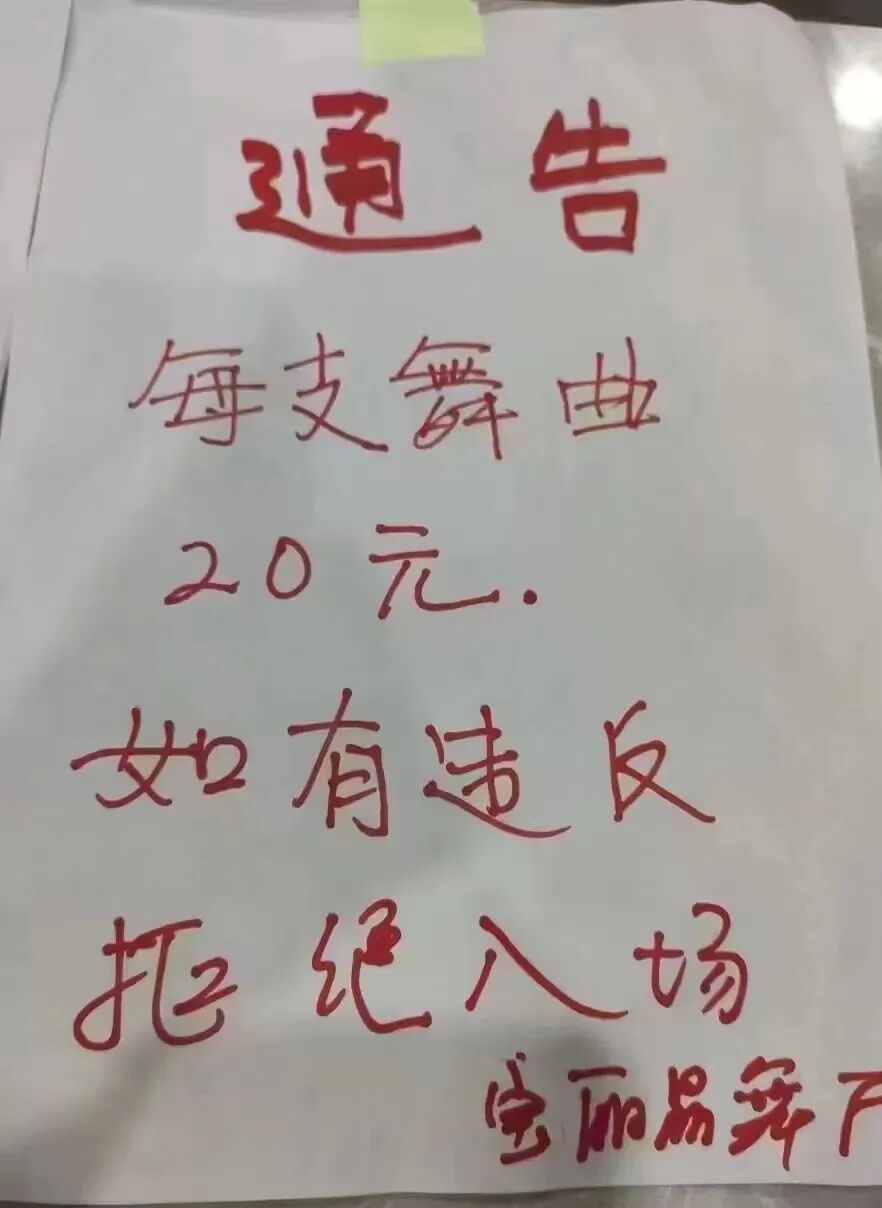 通告
每支舞曲
20元.
如有违反
拒绝入场
宝丽晶舞厅